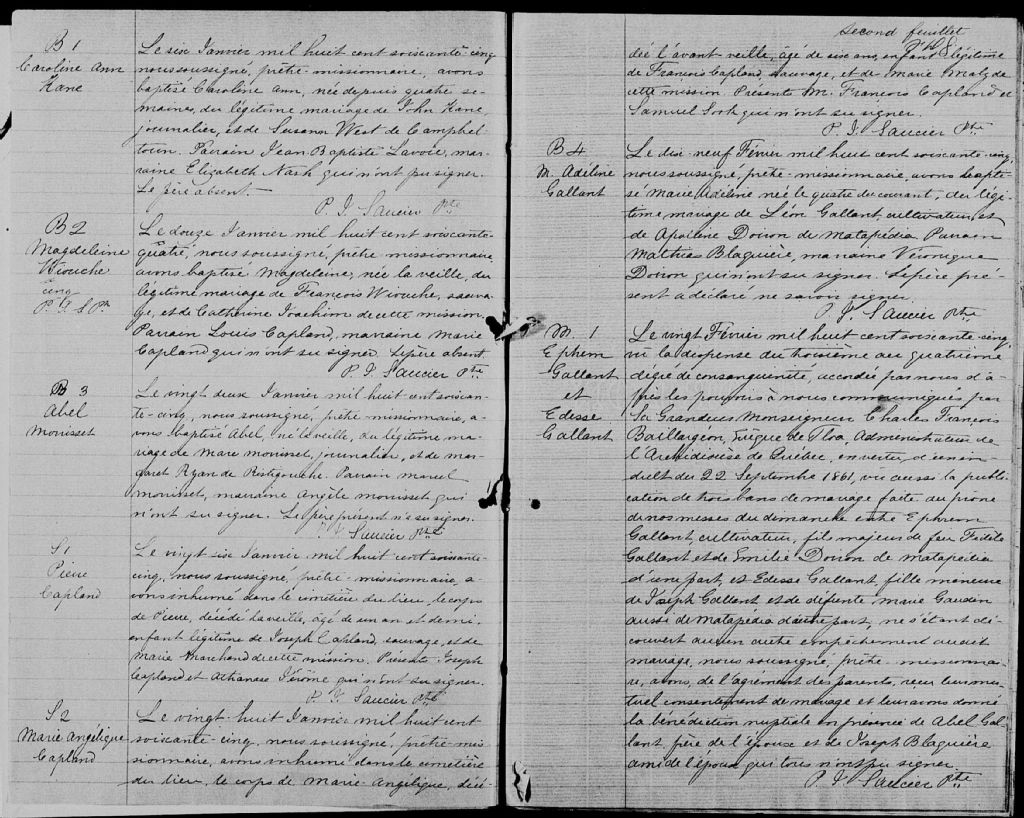 B 1
Caroline Ann
Kane
Le six Janvier mil huit cent soixante-cinq
nous soussigné, prêtre-missionnaire, avons
baptisé Caroline Ann, née depuis quatre se-
maines, du légitime mariage de John Kane,
journalier, et de Susana West de Campbel-
town. Parrain Jean Baptiste Lavoie, mar-
raine Elizabeth Nash qui n'ont pu signer.
Le père absent.
P. J. Saucier Ptre
B2
Magdeleine
Wiouche
cinq
P. J. S Ptre
Le douze Janvier mil huit cent soixante-
quatre, nous soussigné, prêtre-missionnaire,
avons baptisé Magdeleine, née la veille, du
légitime mariage de François Wiouche, sauva-
ge, et de Catherine Joachim de cette mission.
Parrain Louis Capland, marraine Marie
Capland qui n'ont su signer. Le père absent.
P. J. Saucier Ptre
B 3
Abel
Mouisset
Le vingt deux Janvier mil huit cent soixan-
te-cinq, nous soussigné, prêtre-missionnaire, a-
vons baptisé Abel, né la veille, du légitime ma-
riage de Marc Mouisset, journalier, et de Mar-
garet Ryan de Restigouche. Parrain Marcel
Mouisset, marraine Angèle Mouisset qui
n'ont su signer. Le père présent n'a su signer.
P. J. Saucier Ptre
S1
Pierre
Capland
Le vingt six Janvier mil huit cent soixante-
cinq, nous soussigné, prêtre-missionnaire, a-
vons inhumé dans le cimetière du lieu, le corps
de Pierre, décédé la veille, agé de un an et demi,
enfant légitime de Joseph Capland, sauvage, et de
Marie Marchand de cette mission. Présents Joseph
Capland et Athanase Jérôme qui n'ont su signer.
P. J. Saucier Ptre
S2
Marie Angélique
Capland
Le vingt-huit Janvier mil huit cent
soixante-cinq, nous soussigné, prêtre-mis-
sionnaire, avons inhumé dans le cimetière
du lieu, le corps de Marie Angélique, décé-
second feuillet
dée l'avant veille, âgé de six ans, enfant légitime
de François Capland, sauvage, et de Marie de
cette mission. Présents M. François Capland et
Samuel qui n'ont su signer.
P. J. Saucier Ptre
B4
M. Adéline
Gallant
Le dix-neuf Févrir mil huit cent soixante-cinq,
nous soussigné, prêtre-missionnaire, avons bapti-
sé Marie Adéline née le quatre du courant, du légi-
time mariage de Léon Gallant, cultivateur, et
de Apoiline Doiron de Matapédia. Parrain
Mathias Blaquière, marraine Véronique
Doiron qui n'ont su signer. Le père pré-
sent a déclaré ne savoir signer.
P. J. Saucier Ptre
M. 1
Ephrem
Gallant
et
Edesse
Gallant
Le vingt Février mil huit cent soixante-cinq,
vu la dispense du troisième au quatrième
dégré de consanguinité, accordée par nous d'a-
près les pouvoirs à nous communiqués par
Sa Grandeur Monseigneur Charles François
Baillargeon, Evêque de Tloa, Administrateur de
l'Archidiocèse de Québec, en vertu d'un in-
dult du 22 Septembre 1861, vu aussi la publi-
cation de trois bans de mariage faite au prône
de nos messes du dimanche entre Ephrem
Gallant, cultivateur, fils majeur de feu Fidèle
Gallant et de Emilie Doiron de Matapédia
d'une part, et Edesse Gallant, fille mineure
de Joseph Gallant et de défunte Marie Gaudin
aussi de Matapédia d'autre part, ne s'étant dé-
couvert aucun autre empêchement audit
mariage, nous soussigné, prêtre-missionnai-
re, avons, de l'agrément des parents, reçu leur mu-
tuel consentement de mariage et leur avons donné
la bénédiction nuptiale en présence de Abel Gal-
lant père de l'époux et de Joseph Blaquière
ami de l'époux qui tous n'ont pu signer.
P. J. Saucier Ptre